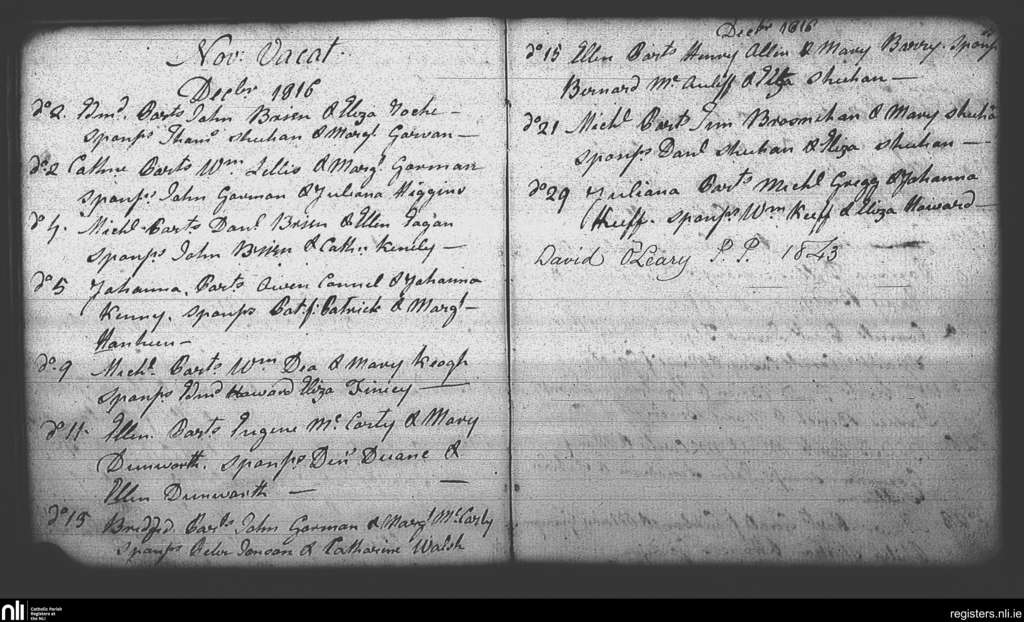 Nov: Vacat.
Decbr 1816
do 2. Edmd. Parts John Brien & Eliza Roche –
sponsps Thams Sheehan & Margt Gorman –
do 2 Cathne Parts Wm. Lillis & Margt Gorman
sponsps John Gorman & Juliana Higgins
do 4. Michl. Parts Danl Brien & Ellen Fagan
sponsps John Brien & Cath: Kenily –
do 5 Johanna. Parts Owen Connel & Johanna
Kenny. sponsps Patrick & Margt
Hanheen –
do 9 Michl. Parts Wm Dea & Mary Keogh
sponsps Edmd Howard Eliza Finney –
do 11. Ellen. Parts Eugene Mc Carty & Mary
Dunworth. sponsps Denl Duane &
Ellen Dunworth –
do 15 Parts John Gorman & Margt McCarty
sponsps Peter & Catharine Walsh
Decbr 1816
do 15 Ellen Parts Henry Allen & Mary Barry. sponsps
Bernard Mc Auliff & Eliza Sheehan –
do 21 Michl Parts Jim Brosnehan & Mary Sheehan
sponsps Danl Sheehan & Eliza Sheehan –
do 29 Juliana Parts Michl Gregg & Johanna
Keeff. sponsps Wm Keeff & Eliza Howard –
David O'Leary P.P. 1843
nli
Catholic Parish
Registers at
the NLI
registers.nli.ie